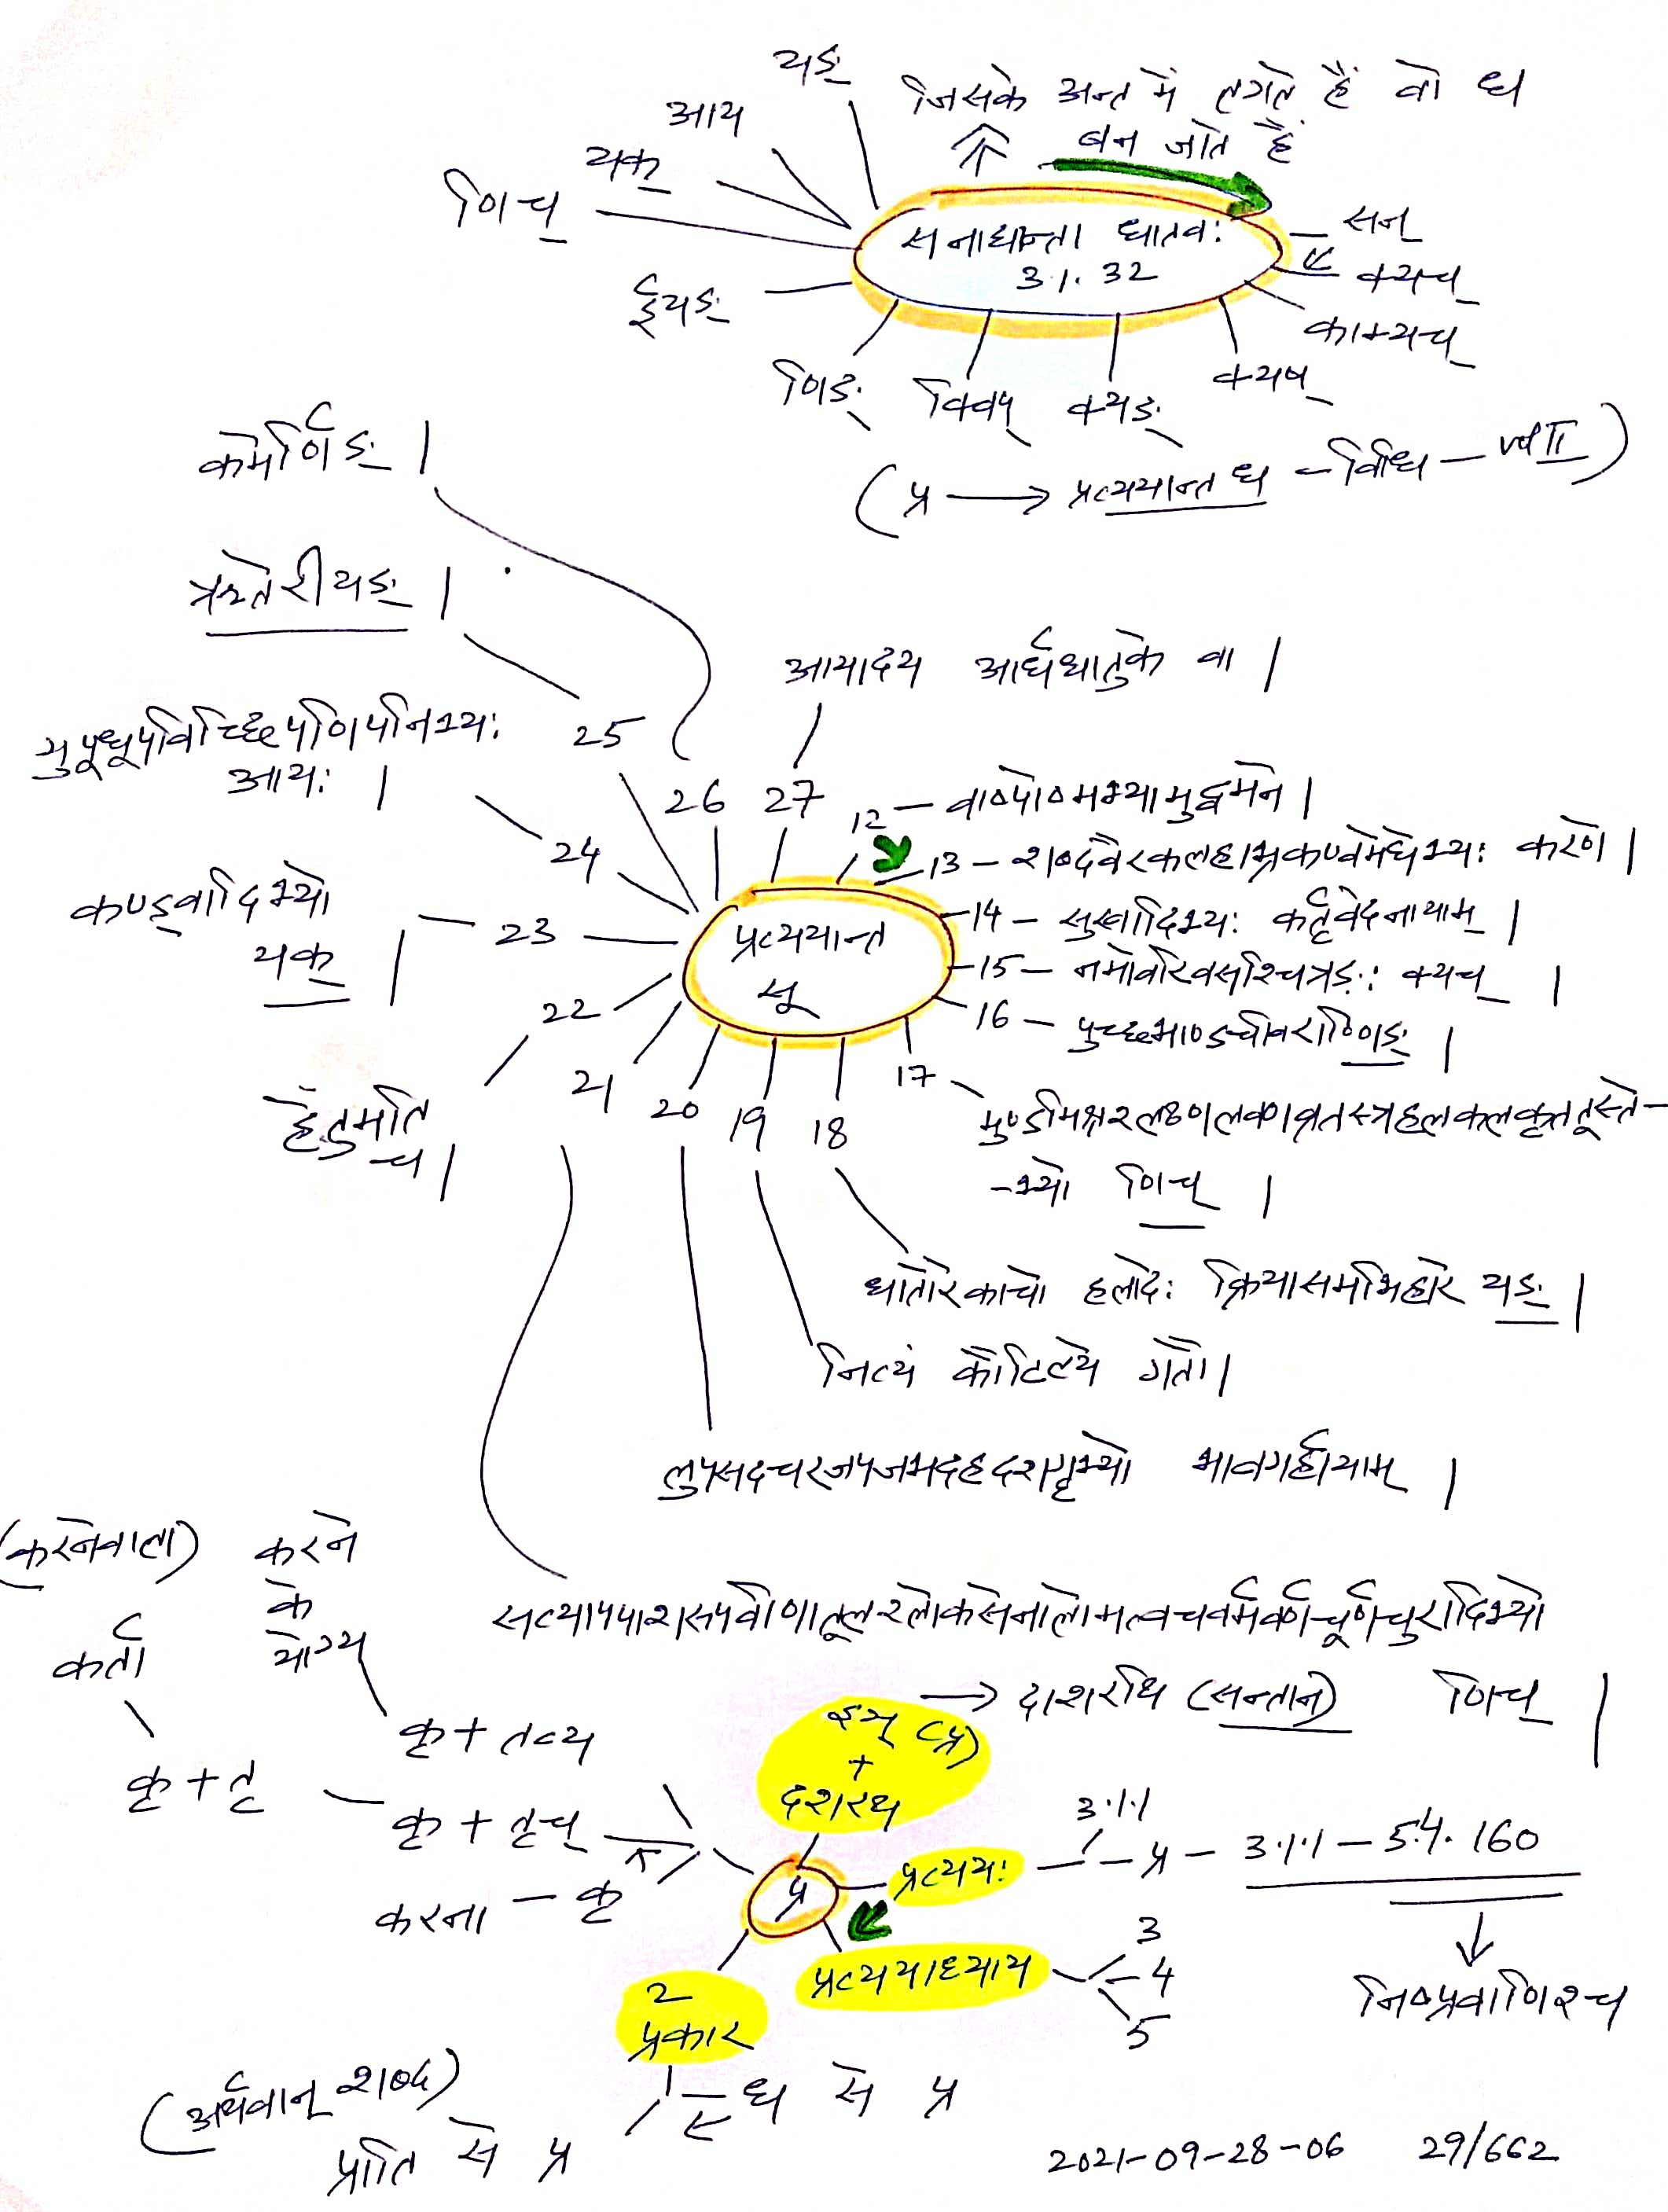 यङ्
आय
यक्
णिच्
ईयङ्
णिङ्
क्विप्
क्यङ्
क्यष्
काम्यच्
क्यच्
सन्
जिसके अन्त में लगते हैं वो ध
बन जाते हैं
सनाद्यन्ता धातवः
3.1.32
(प्र → प्रत्ययान्त ध - विधि - Vol II)
कमेर्णिङ् |
ऋतेरीयङ् |
गुपूधूपविच्छिपणिपनिभ्यः
आयः |
कण्ड्वादिभ्यो
यक् |
हेतुमति
च |
आयादय आर्धधातुके वा |
25
26
27
24
23
22
21
20
19
18
17
प्रत्ययान्त
सू
12 - वाष्पोष्मभ्यामुद्वमने |
13 - शब्दवैरकलहाभ्रकण्वमेघेभ्यः करणे |
14 - सुखादिभ्यः कर्तृवेदनायाम् |
15 - नमोवरिवसश्चित्रङः क्यच् |
16 - पुच्छभाण्डचीवराण्णिङ् |
मुण्डमिश्रश्लक्ष्णलवणव्रतवस्त्रहलकलकृततूस्ते-
-भ्यो णिच् |
धातोरेकाचो हलादेः क्रियासमभिहारे यङ् |
नित्यं कौटिल्ये गतौ |
लुपसदचरजपजभदहदशगृभ्यो भावगर्हायाम् |
सत्यापपाशरूपवीणातूलश्लोकसेनालोमत्वचवर्मवर्णचूर्णचुरादिभ्यो
णिच् |
(करनेवाला)
कर्ता
करने
के
योग्य
कृ + तृ
कृ + तव्य
कृ + तृच्
करना - कृ
इञ् (प्र)
+
दशरथ
→ दाशरथि (सन्तान)
प्र
प्रत्ययः
3.1.1
- प्र - 3.1.1 - 5.4.160
प्रत्ययाध्याय
3
4
5
निष्प्रवाणिश्च
2
प्रकार
ध से प्र
(अर्थवान् शब्द)
प्राति से प्र
2021-09-28-06 29/662